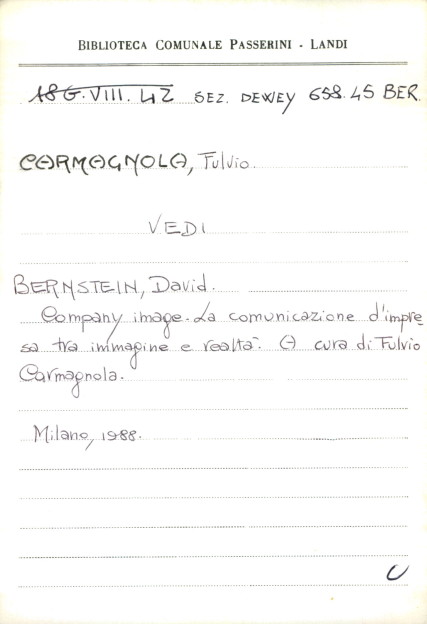 BIBLIOTECA COMUNALE PASSERINI - LANDI
18G.VIII.42 SEZ. DEWEY 658.45 BER.
CARMAGNOLA, Fulvio.
VEDI
BERNSTEIN, David.
Company image. La comunicazione d'impre
sa tra immagine e realtà. A cura di Fulvio
Carmagnola.
Milano, 1988.
U